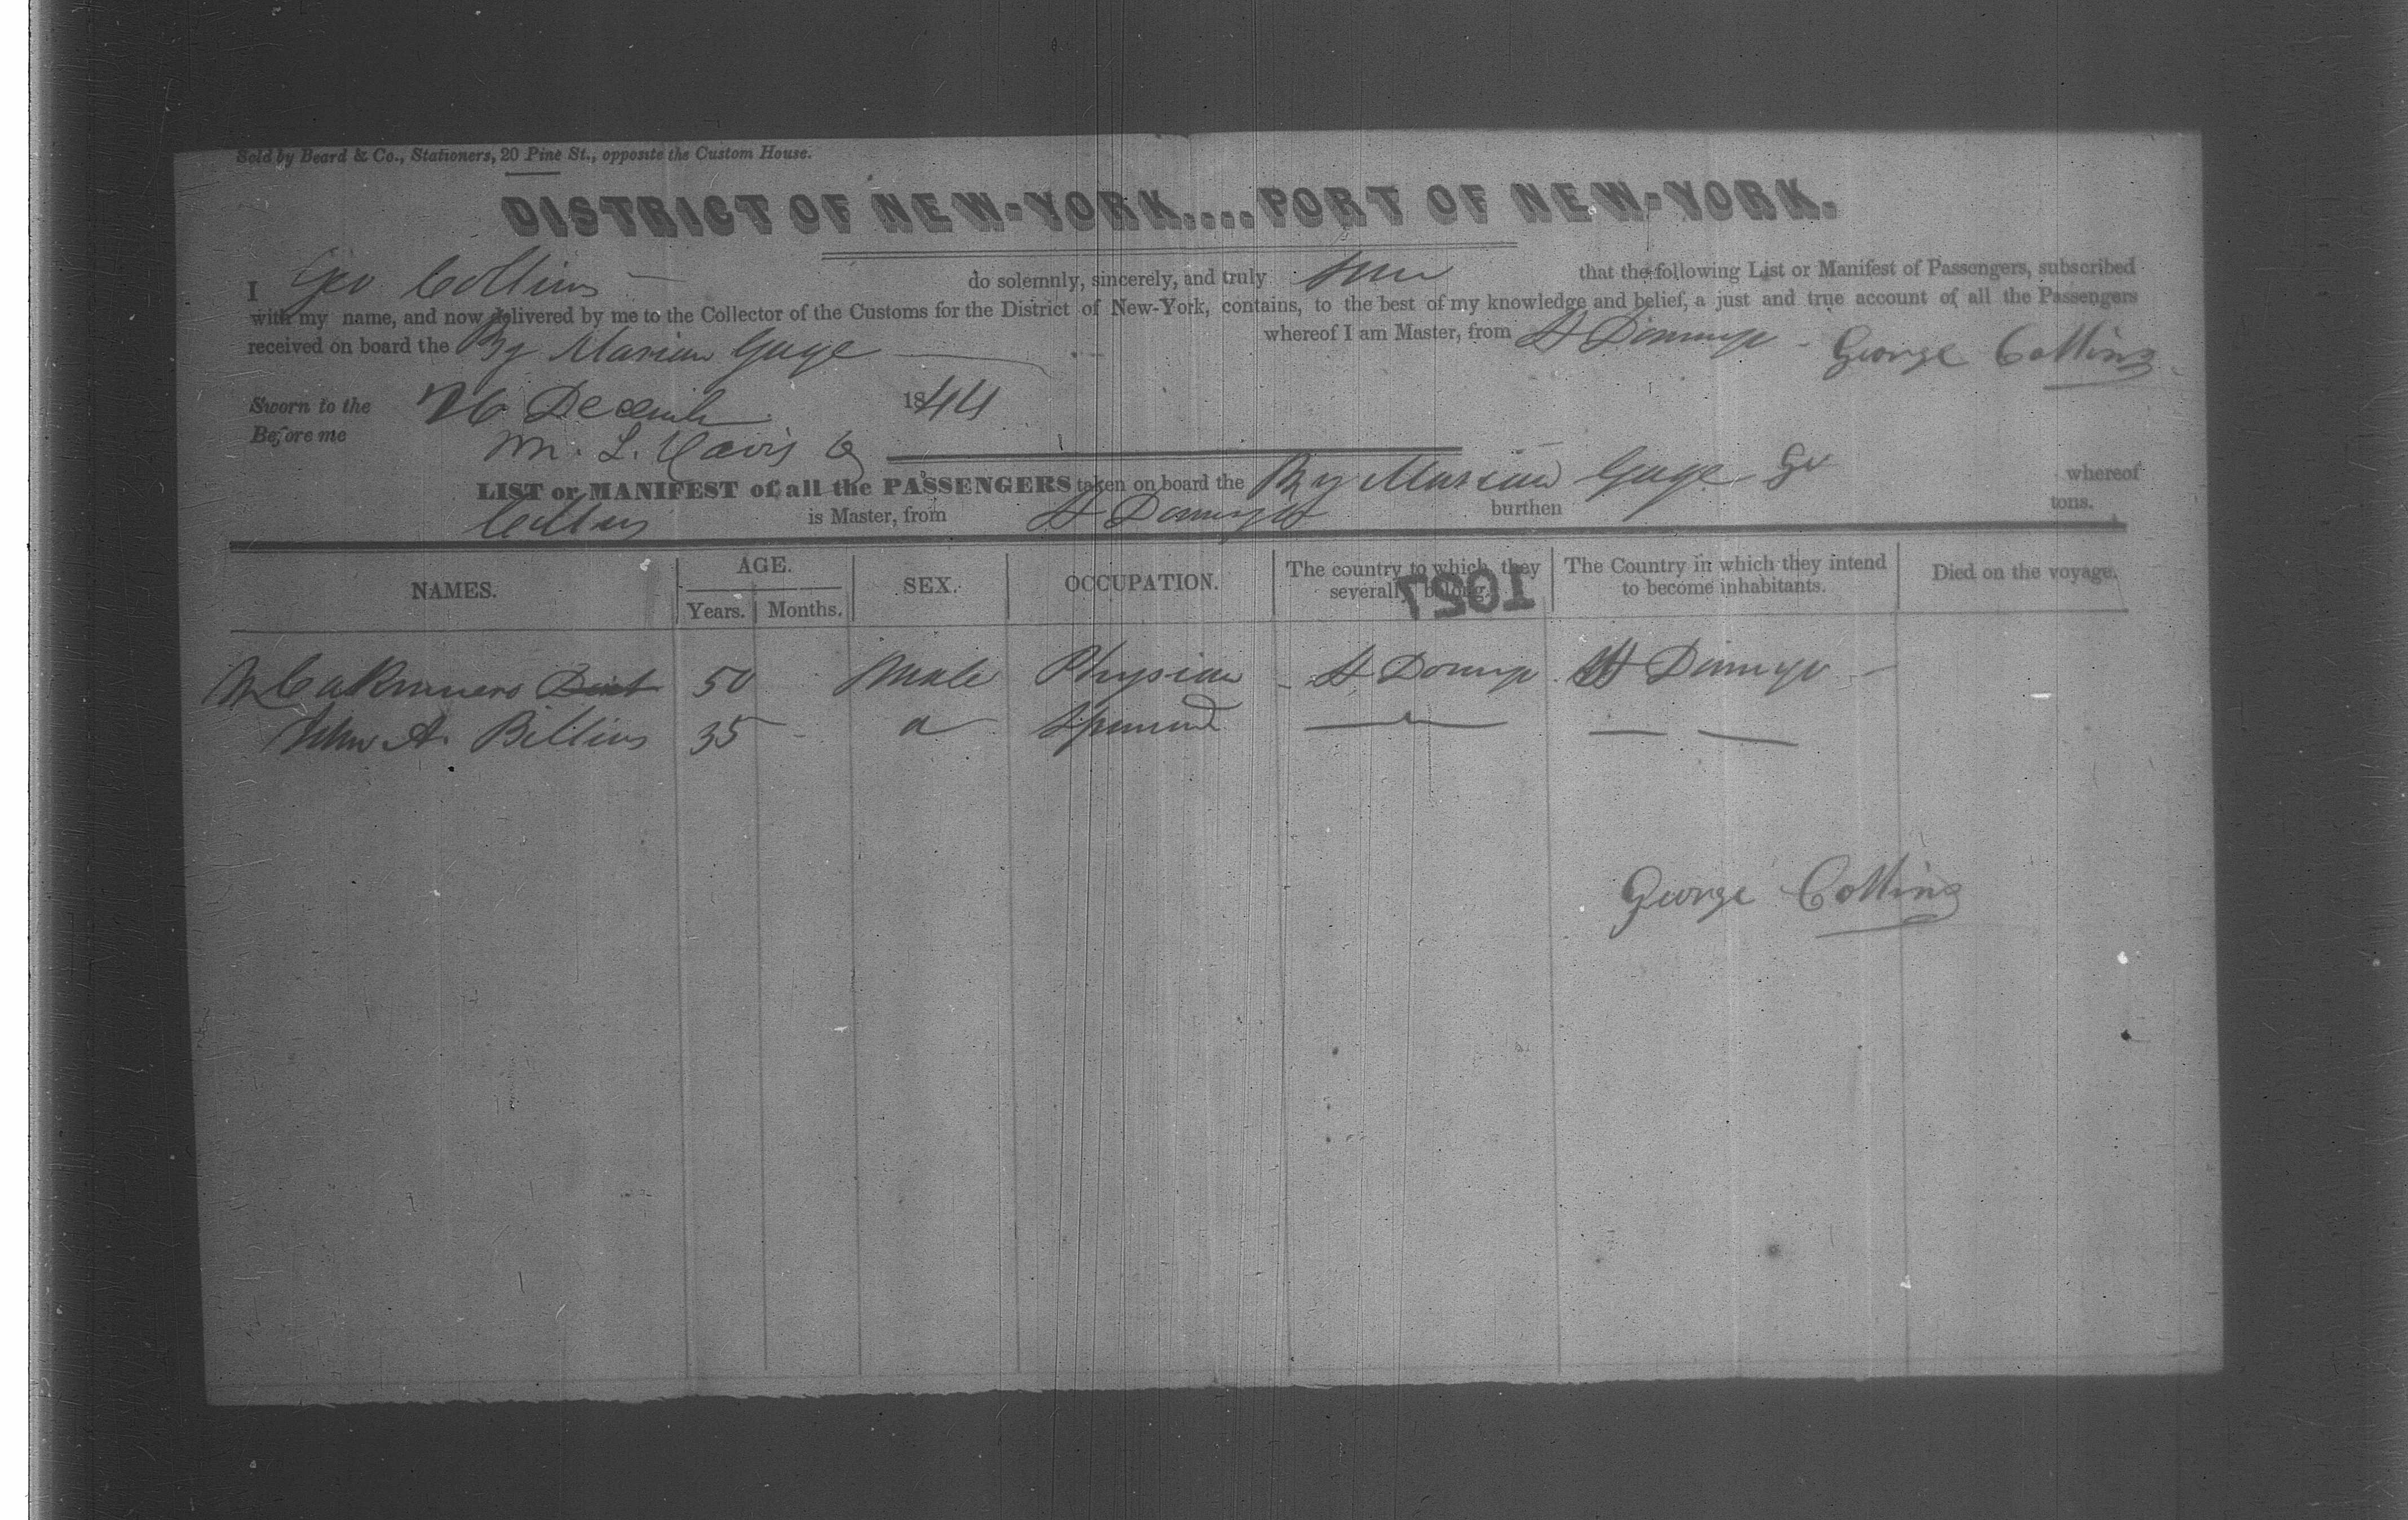 Sold by Beard & Co., Stationers, 20 Pine St., opposite the Custom House.
DISTRICT OF NEW-YORK....PORT OF NEW-YORK.
I Geo Collins do solemnly, sincerely, and truly that the following List or Manifest of Passengers, subscribed
with my name, and now delivered by me to the Collector of the Customs for the District of New-York, contains, to the best of my knowledge and belief, a just and true account of all the Passengers
received on board the Bg Marian Gage whereof I am Master, from St Domingo George Collins
Sworn to the 26 December 1844
Before me M. L. Davis
LIST or MANIFEST of all the PASSENGERS taken on board the Bg Marian Gage Geo whereof
Collins is Master, from St Domingo burthen tons.
NAMES. AGE. Years. Months. SEX. OCCUPATION. The country to which they severally belong. The Country in which they intend to become inhabitants. Died on the voyage.
1027
50 Male Physician St Domingo St Domingo
John A. Billins 35
George Collins